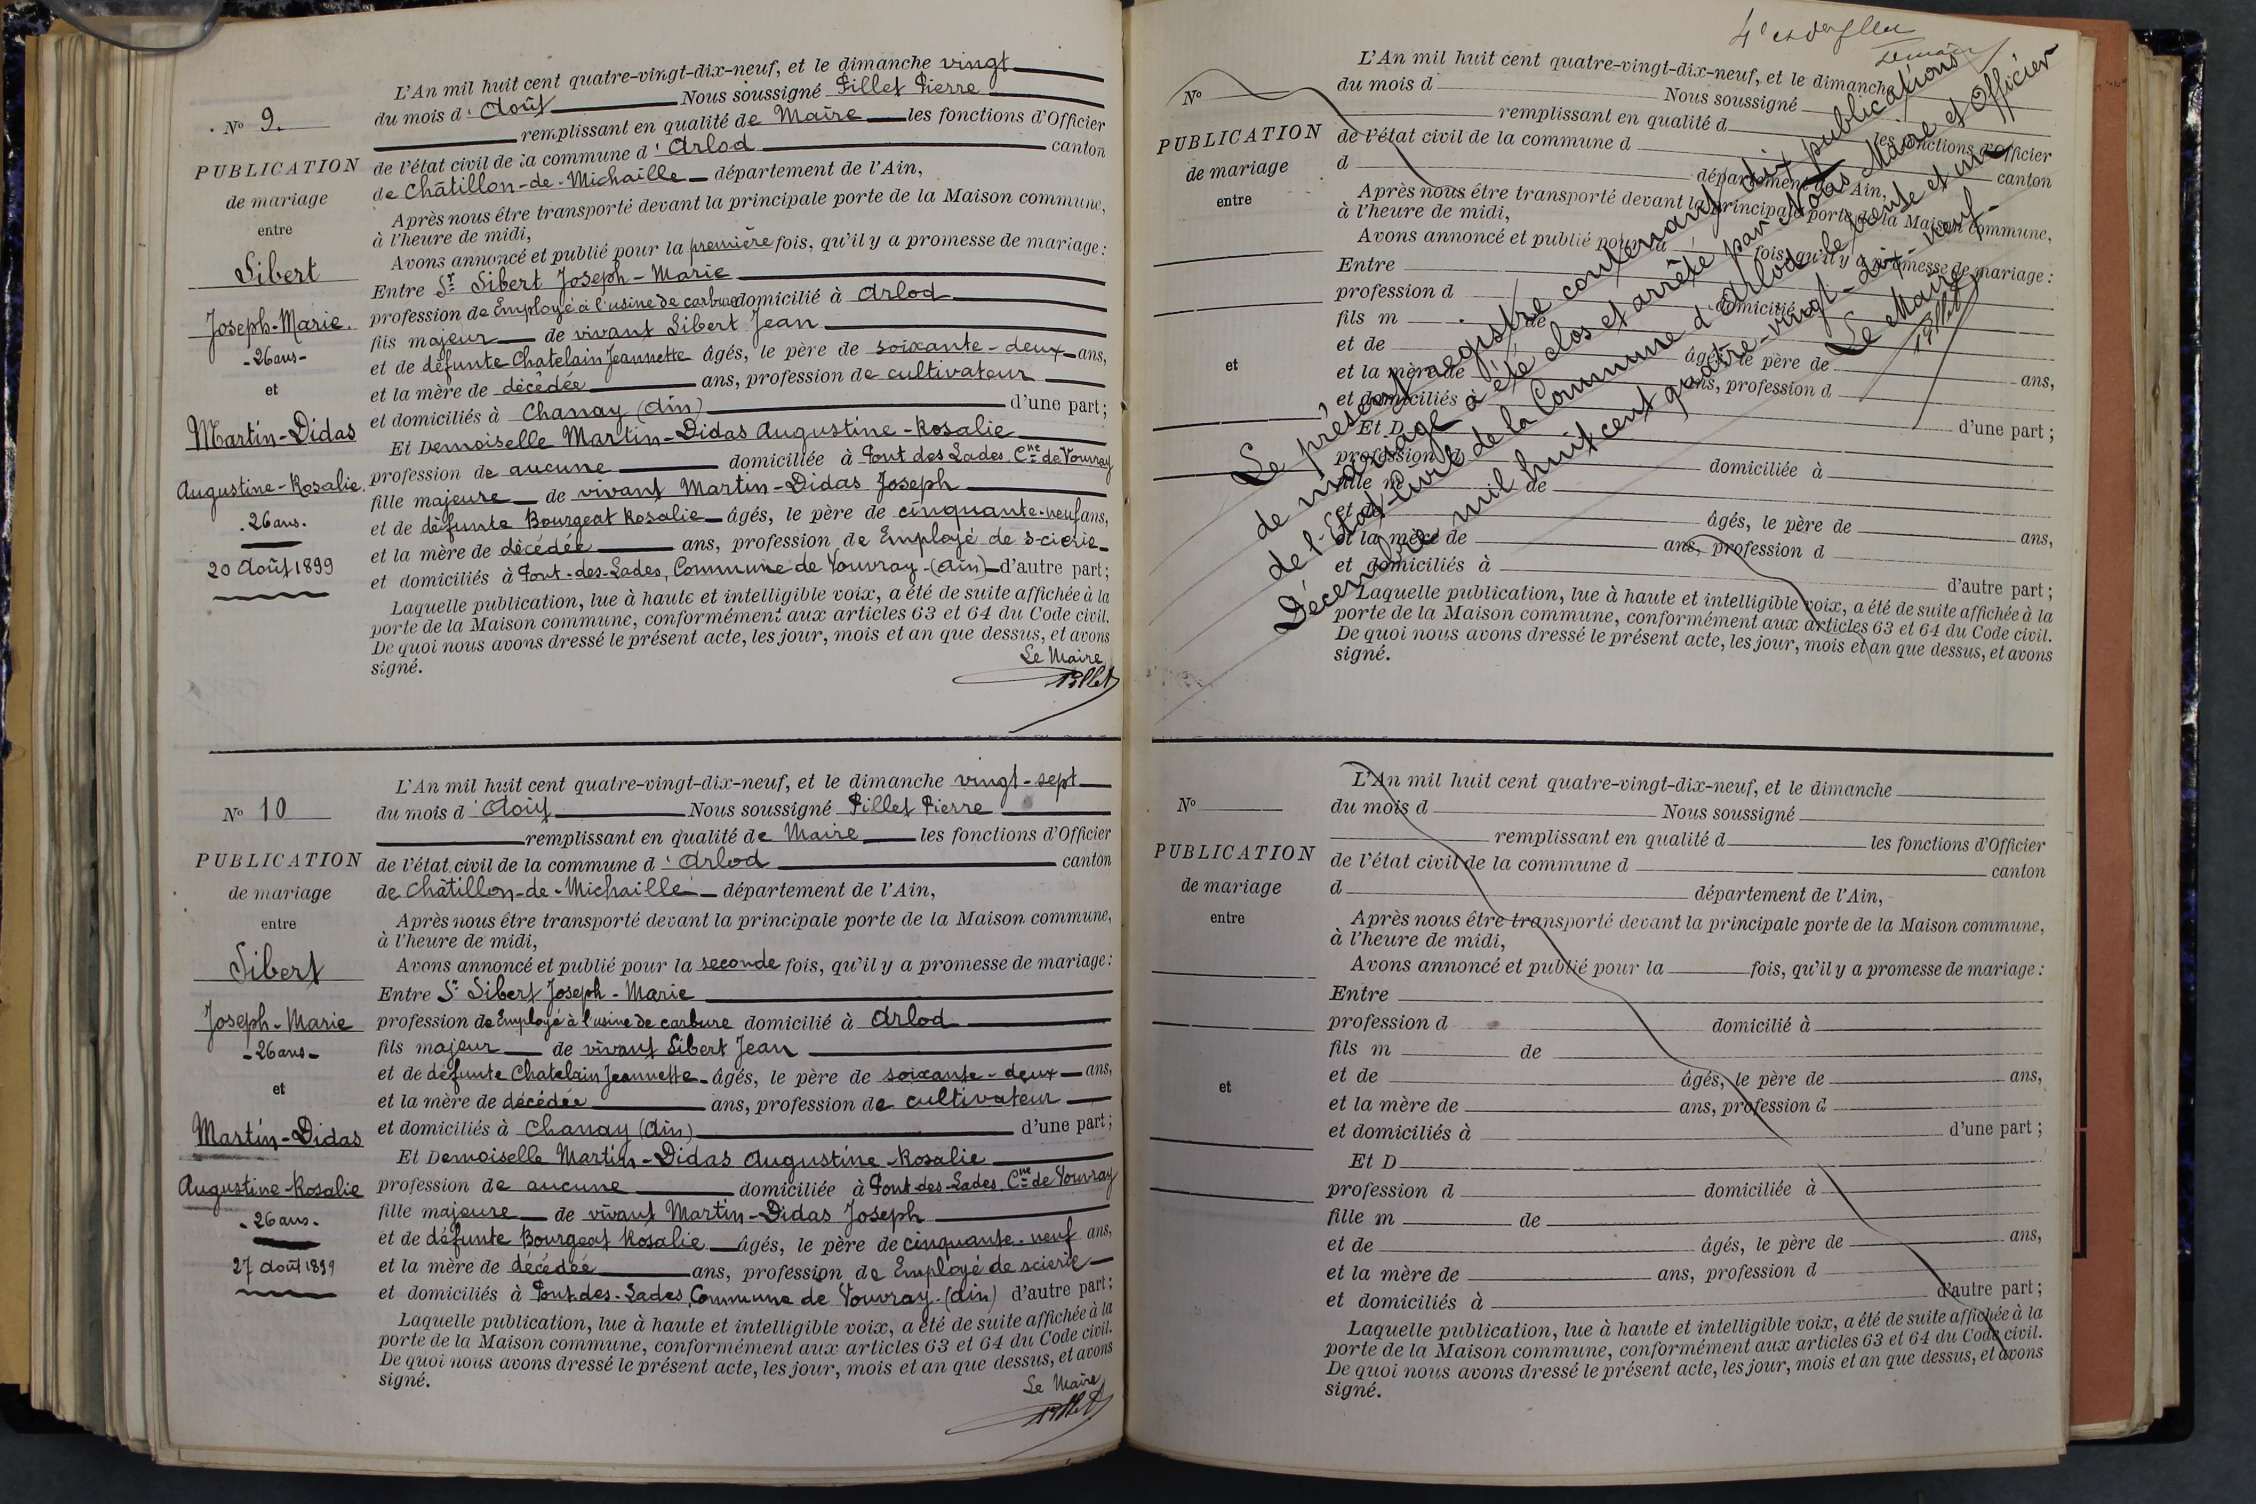 L'An mil huit cent quatre-vingt-dix-neuf, et le dimanche vingt
du mois d'Août Nous soussigné Pillet Pierre
remplissant en qualité de Maire les fonctions d'Officier
de l'état civil de la commune d'Arlod canton
de Châtillon-de-Michaille département de l'Ain,
Après nous être transporté devant la principale porte de la Maison commune,
à l'heure de midi,
Avons annoncé et publié pour la première fois, qu'il y a promesse de mariage :
Entre Sr Sibert Joseph-Marie
profession de Employé à l'usine de carbure domicilié à Arlod
fils majeur de vivant Sibert Jean
et de défunte Chatelain Jeannette âgés, le père de soixante-deux ans,
et la mère de décédée ans, profession de cultivateur
et domiciliés à Chanay (Ain) d'une part ;
Et Demoiselle Martin-Didas Augustine-Rosalie
profession de aucune domiciliée à Pont des Lades Cne de Vouvray
fille majeure de vivant Martin-Didas Joseph
et de défunte Bourgeat Rosalie âgés, le père de cinquante-neuf ans,
et la mère de décédée ans, profession de Employé de scierie
et domiciliés à Pont-des-Lades, Commune de Vouvray-(Ain) d'autre part ;
Laquelle publication, lue à haute et intelligible voix, a été de suite affichée à la
porte de la Maison commune, conformément aux articles 63 et 64 du Code civil.
De quoi nous avons dressé le présent acte, les jour, mois et an que dessus, et avons
signé.
Le Maire
Pillet
No 9.
PUBLICATION
de mariage
entre
Sibert
Joseph-Marie.
-26 ans-
et
Martin-Didas
Augustine-Rosalie.
-26 ans-
20 Août 1899
L'An mil huit cent quatre-vingt-dix-neuf, et le dimanche vingt-sept
du mois d'Août Nous soussigné Pillet Pierre
remplissant en qualité de Maire les fonctions d'Officier
de l'état civil de la commune d'Arlod canton
de Châtillon-de-Michaille département de l'Ain,
Après nous être transporté devant la principale porte de la Maison commune,
à l'heure de midi,
Avons annoncé et publié pour la seconde fois, qu'il y a promesse de mariage :
Entre Sr Sibert Joseph-Marie
profession de Employé à l'usine de carbure domicilié à Arlod
fils majeur de vivant Sibert Jean
et de défunte Chatelain Jeannette âgés, le père de soixante-deux ans,
et la mère de décédée ans, profession de cultivateur
et domiciliés à Chanay (Ain) d'une part ;
Et Demoiselle Martin-Didas Augustine-Rosalie
profession de aucune domiciliée à Pont-des-Lades Cne de Vouvray
fille majeure de vivant Martin-Didas Joseph
et de défunte Bourgeat Rosalie âgés, le père de cinquante-neuf ans,
et la mère de décédée ans, profession de Employé de scierie
et domiciliés à Pont-des-Lades, Commune de Vouvray-(Ain) d'autre part ;
Laquelle publication, lue à haute et intelligible voix, a été de suite affichée à la
porte de la Maison commune, conformément aux articles 63 et 64 du Code civil.
De quoi nous avons dressé le présent acte, les jour, mois et an que dessus, et avons
signé.
Le Maire
Pillet
No 10
PUBLICATION
de mariage
entre
Sibert
Joseph-Marie
-26 ans-
et
Martin-Didas
Augustine-Rosalie
-26 ans-
27 Août 1899
4e et
L'An mil huit cent quatre-vingt-dix-neuf, et le dimanche
du mois d Nous soussigné
remplissant en qualité d les fonctions d'Officier
de l'état civil de la commune d canton
d département de l'Ain,
Après nous être transporté devant la principale porte de la Maison commune,
à l'heure de midi,
Avons annoncé et publié pour la fois, qu'il y a promesse de mariage :
Entre
profession d domicilié à
fils m de
et de âgés, le père de ans,
et la mère de ans, profession d
et domiciliés à d'une part ;
Et D
profession d domiciliée à
fille m de
et de âgés, le père de ans,
et la mère de ans, profession d
et domiciliés à d'autre part ;
Laquelle publication, lue à haute et intelligible voix, a été de suite affichée à la
porte de la Maison commune, conformément aux articles 63 et 64 du Code civil.
De quoi nous avons dressé le présent acte, les jour, mois et an que dessus, et avons
signé.
No
PUBLICATION
de mariage
entre
et
Le présent registre contenant dix publications
de mariage a été clos et arrêté par Nous Maire et Officier
de l'Etat-Civil de la Commune d'Arlod le trente et un
Décembre mil huit cent quatre-vingt-dix-neuf.
Le Maire
Pillet
L'An mil huit cent quatre-vingt-dix-neuf, et le dimanche
du mois d Nous soussigné
remplissant en qualité d les fonctions d'Officier
de l'état civil de la commune d canton
d département de l'Ain,
Après nous être transporté devant la principale porte de la Maison commune,
à l'heure de midi,
Avons annoncé et publié pour la fois, qu'il y a promesse de mariage :
Entre
profession d domicilié à
fils m de
et de âgés, le père de ans,
et la mère de ans, profession d
et domiciliés à d'une part ;
Et D
profession d domiciliée à
fille m de
et de âgés, le père de ans,
et la mère de ans, profession d
et domiciliés à d'autre part ;
Laquelle publication, lue à haute et intelligible voix, a été de suite affichée à la
porte de la Maison commune, conformément aux articles 63 et 64 du Code civil.
De quoi nous avons dressé le présent acte, les jour, mois et an que dessus, et avons
signé.
No
PUBLICATION
de mariage
entre
et